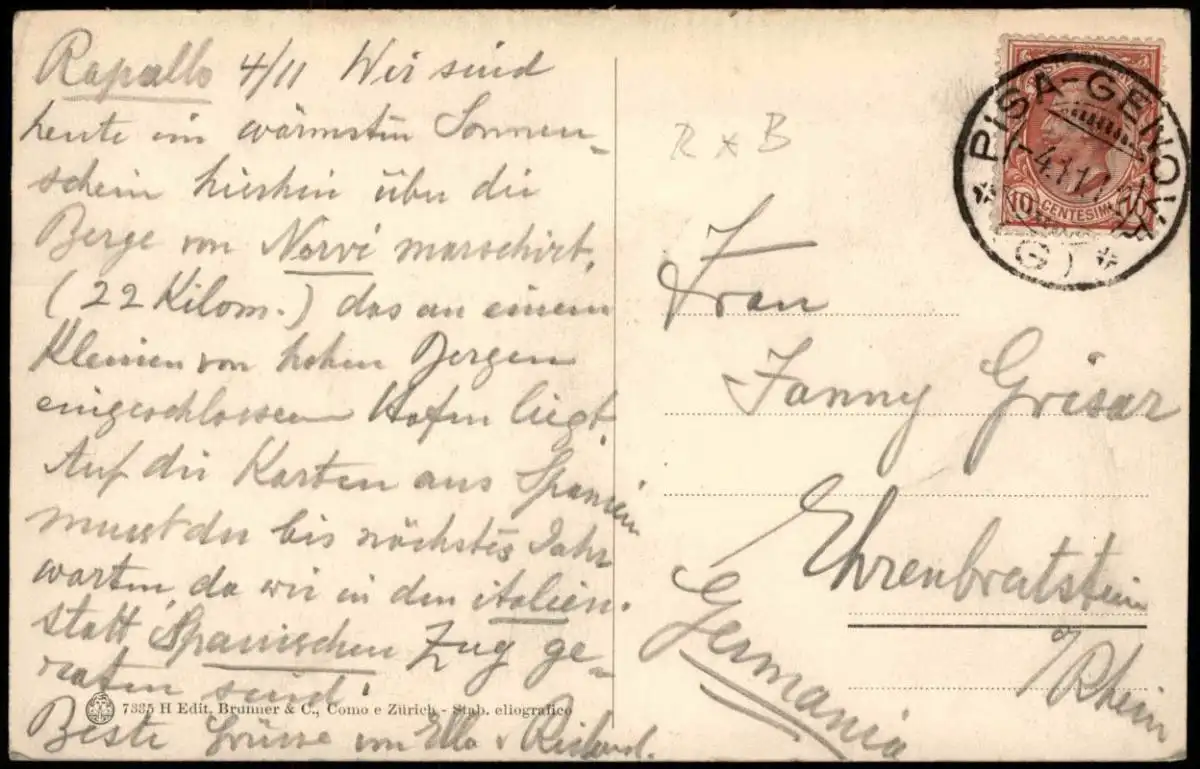 Rapallo 4/11 Wir sind
heute im wärmsten Sonnen-
schein hierhin über die
Berge von Nervi marschirt,
(22 Kilom.) das an einem
kleinen von hohen Bergen
eingeschlossenen Hafen liegt.
Auf die Karten aus Spanien
musst du bis nächstes Jahr
warten, da wir in den italien.
statt Spanischen Zug ge-
raten sind.
Beste Grüsse von Ella u Richard.
7335 H Edit. Brunner & C., Como e Zürich - Stab. eliografico
R x B
PISA-GENOVA
10 CENTESIMI 10
Frau
Fanny Grisar
Ehrenbreitstein
a/Rhein
Germania